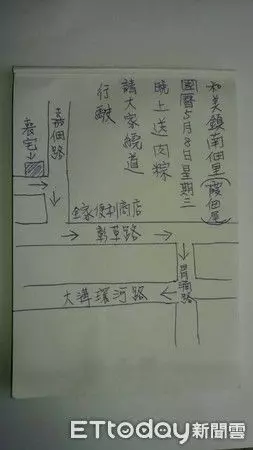 和美鎮南佃里(嘐佃尾)
國曆5月8日星期三
晚上送肉粽
請大家繞道
行駛
嘉佃路
喪宅
全家便利商店
彰草路
胃潮路
大溝環河路
ETtoday新聞雲